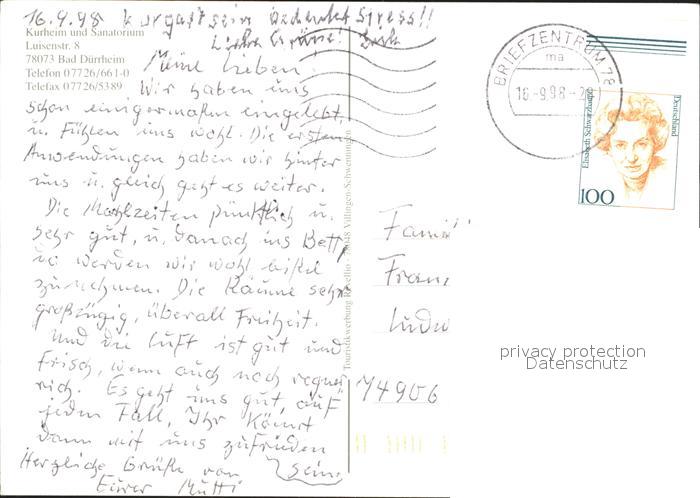 16.9.98 Kurgast sein bedeutet Stress!!
Liebe Grüsse!
Kurheim und Sanatorium
Luisenstr. 8
78073 Bad Dürrheim
Telefon 07726/661-0
Telefax 07726/5389
Meine Lieben!
Wir haben uns
schon einigermaßen eingelebt,
u. Fühlen uns wohl. Die ersten
Anwendungen haben wir hinter
uns u. gleich geht es weiter.
Die Mahlzeiten pünktlich u.
sehr gut, u. danach ins Bett,
da werden wir wohl bißel
zunehmen. Die Räume sehr
großzügig, überall Freiheit.
Und die Luft ist gut und
Frisch, wenn auch noch regne
risch. Es geht uns gut, auf
jeden Fall, Ihr Könnt
dann mit uns zufrieden
sein.
Herzliche Grüße von
Eurer Mutti
Touristikwerbung 78048 Villingen-Schwenningen
BRIEFZENTRUM 78
ma
16.-9.98-2
Deutschland
Elisabeth Schwarzhaupt
100
Famili
Fran
Ludw
74906
privacy protection
Datenschutz